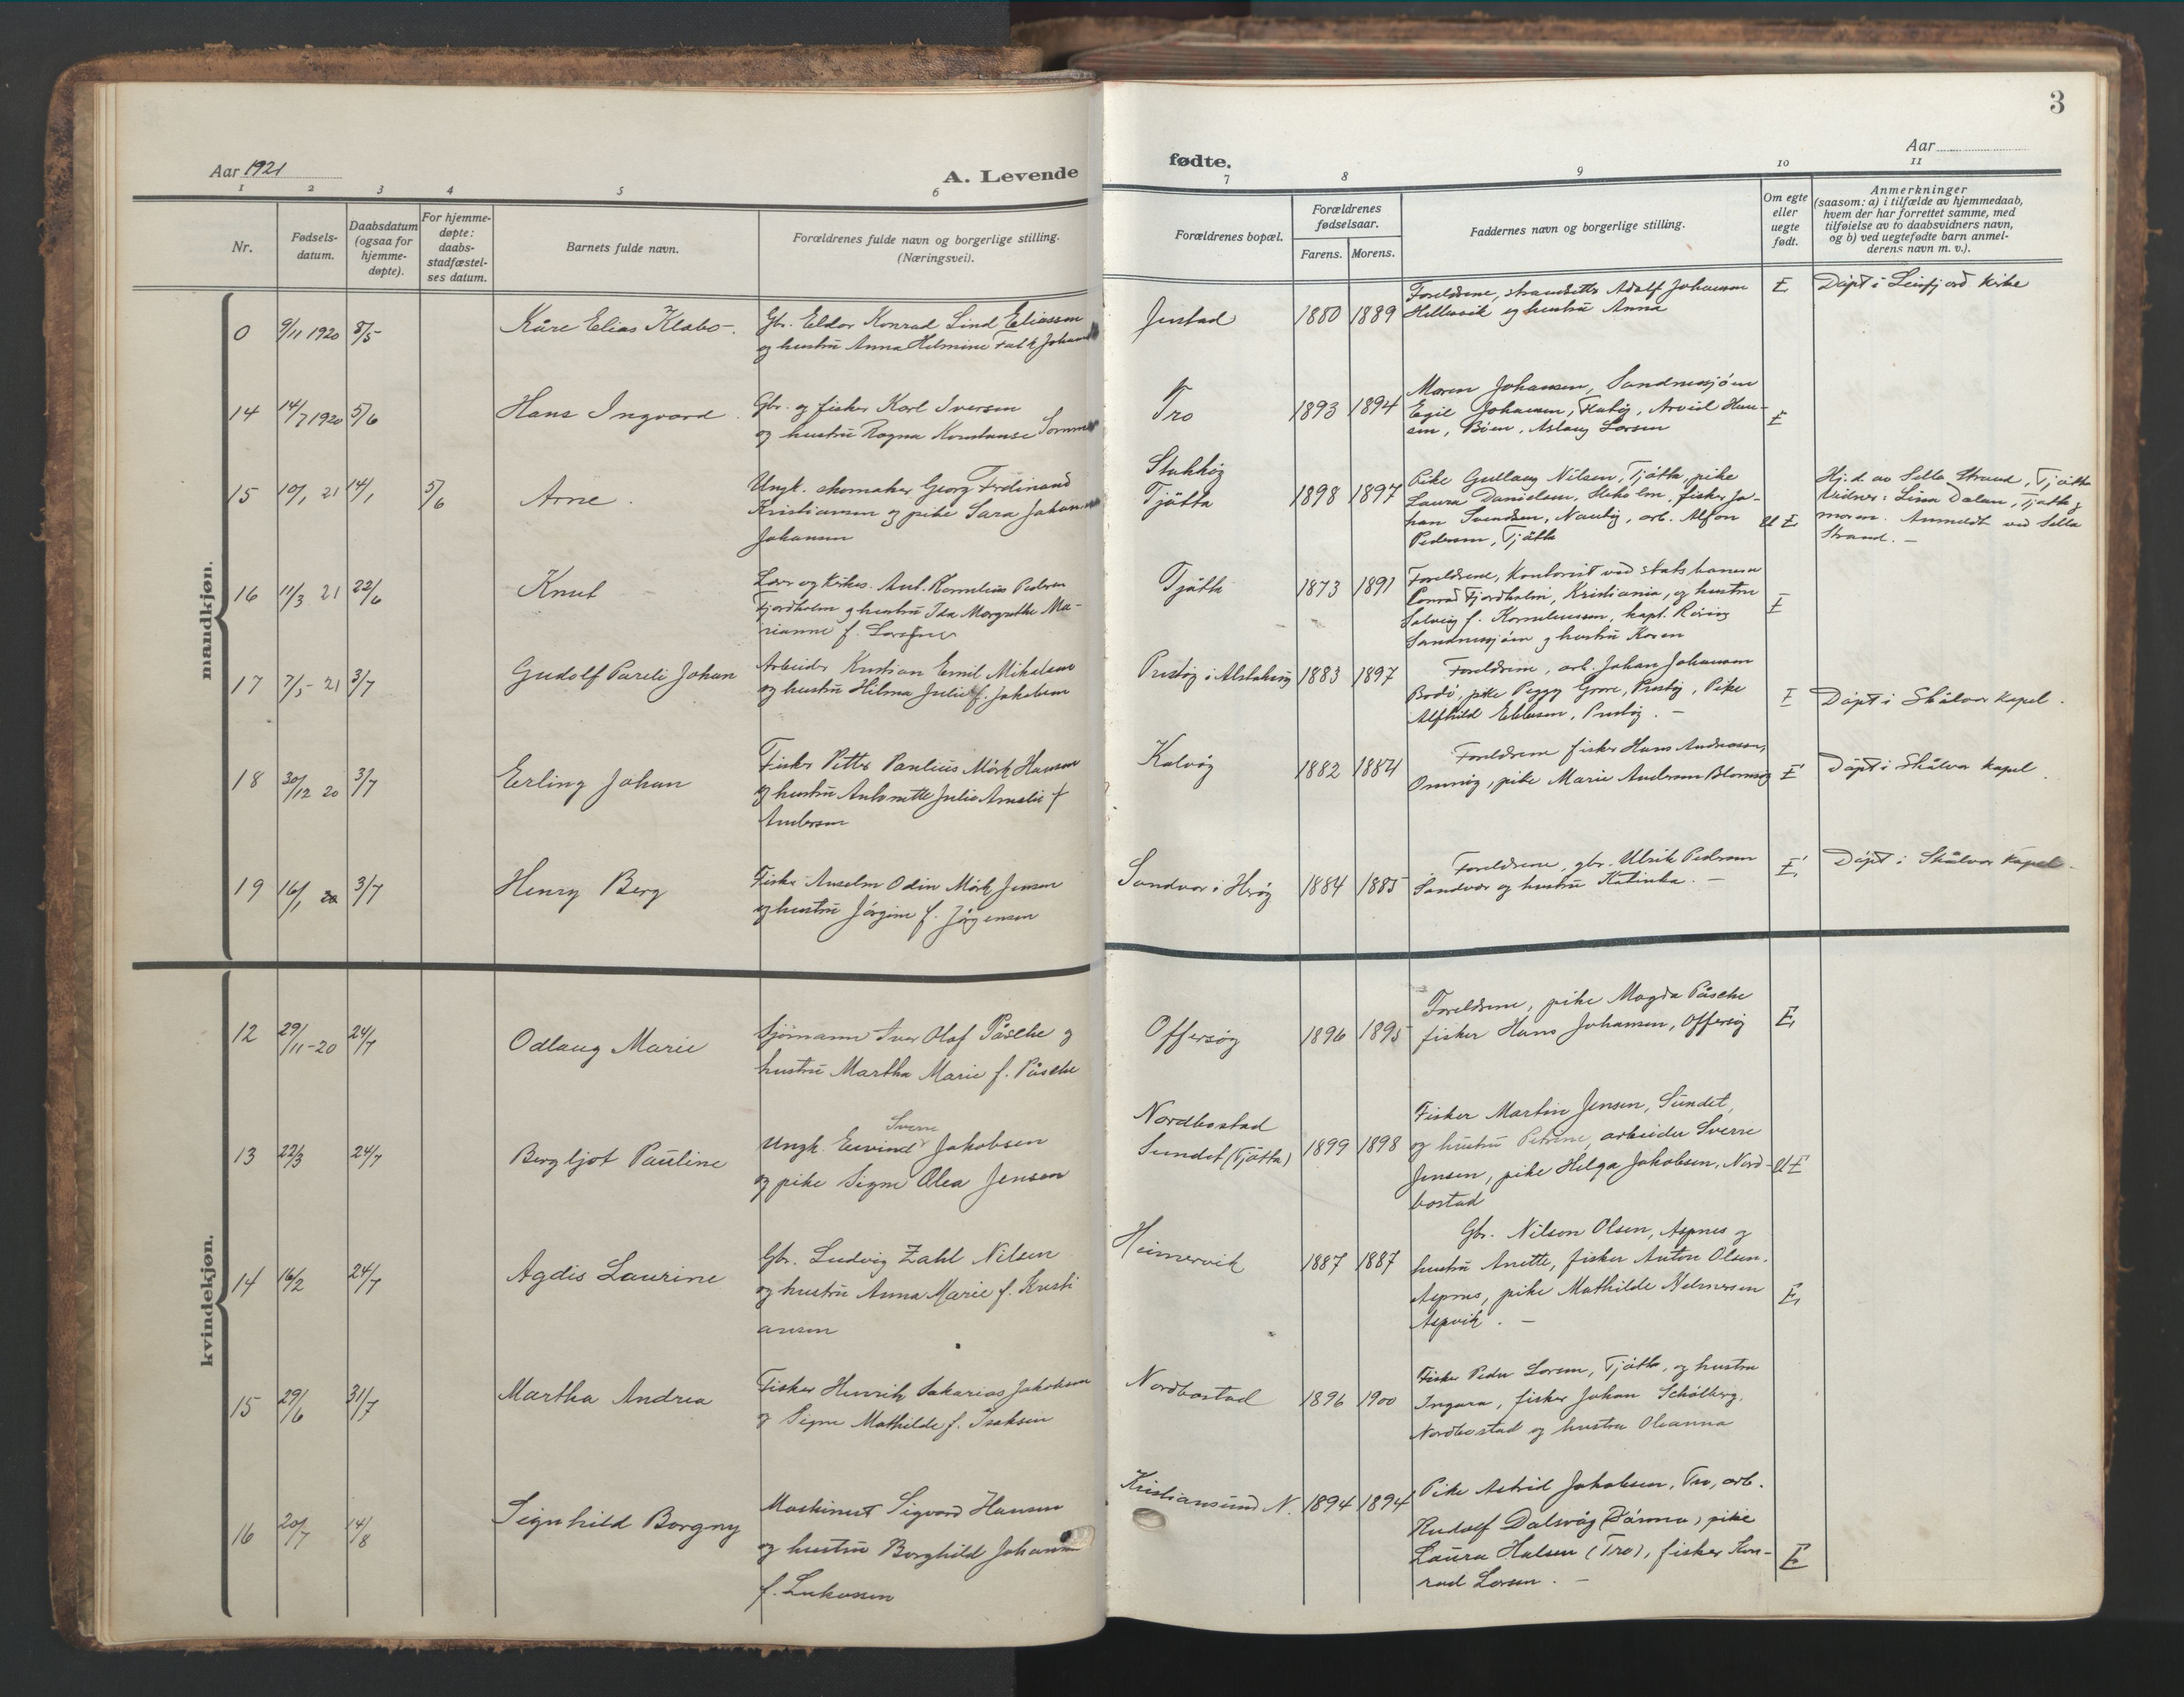 3
Aar 1921
A. Levende
fødte.
Aar
1 2 3 4 5 6 7 8 9 10 11
Nr.
Fødsels-
datum.
Daabsdatum
(ogsaa for
hjemme-
døpte).
For hjemme-
døpte:
daabs-
stadfæstel-
ses datum.
Barnets fulde navn.
Forældrenes fulde navn og borgerlige stilling.
(Næringsvei).
Forældrenes bopæl.
Forældrenes
fødselsaar.
Farens. Morens.
Faddernes navn og borgerlige stilling.
Om egte
eller
uegte
født.
Anmerkninger
(saasom: a) i tilfælde av hjemmedaab,
hvem der har forrettet samme, med
tilføielse av to daabsvidners navn,
og b) ved uegtefødte barn anmel-
derens navn m. v.).
mandkjøn.
0 9/11 1920 8/5 Kåre Elias Klabo.
Gbr. Eldor Konrad Lind Eliassen
og hustru Anna Helmine Falk
Jenstad 1880 1889
Foreldrene, strandsitter Adolf Johansen
Hellesvik og hustru Anna
E Døpt i Leirfjord kirke
14 14/7 1920 5/6 Hans Ingvard
Gbr. og fisker Karl Iversen
og hustru Ragna Konstanse
Tro 1893 1894
Maren Johansen, Sandnessjøen
Egil Johansen, Arvid Han-
sen, Bøen, Aslaug Larsen
E
15 10/1 21 14/1 5/6 Arne
Ungk. skomaker Georg Ferdinand
Kristiansen og pike Sara
Johansen
Stokkøy
Tjøtta 1898 1897
Pike Gudlaug Nilsen, Tjøtta, pike
Laura Danielsen, fisker Jo-
han Svendsen, Nauøy, arb. Alfon
Pedersen, Tjøtta
U E
Hj. d. av Sella Strand, Tjøtta
Vidner: Lina Dalen, Tjøtta og
moren. Anmeldt ved Sella
Strand.
16 11/3 21 22/6 Knut
Lærer og kirkes. Ant. Kornelius Peder
Fjordholm og hustru Ida Margrethe Ma-
rianne f.
Tjøtta 1873 1891
Foreldrene, kontorist ved statsbanen
Conrad Fjordholm, Kristiania, og hustru
Solveig f. Korneliussen, kapt. Røring
Sandnessjøen og hustru Karen
E
17 7/5 21 3/7 Gudolf Pareli Johan
Arbeider Kristian Emil Mikalsen
og hustru Hilma Julie f. Jakobsen
Prestøy i Alstahaug 1883 1897
Foreldrene, arb. Johan Johansen
Bodø, pike Peggy Grove, Prestøy, Pike
Alfhild Ebbesen, Prestøy.
E Døpt i Skålvær kapel.
18 30/12 20 3/7 Erling Johan
Fisker Petter Paulius Mørk Hansen
og hustru Antonette Julie Amalie f
Andersen
Kalvøy 1882 1884
Foreldrene fisker Hans Andreassen,
pike Marie Andersen Blomsøy
E Døpt i Skålvær kapel.
19 16/1 3/7 Henry Berg
Fisker Anselm Odin Mørk Jensen
og hustru Jørgine f. Jørgensen
Sandvær i Herøy 1884 1885
Foreldrene, gbr. Ulrik Pedersen
Sandvær og hustru Katinka.
E Døpt i Skålvær kapel.
kvindekjøn.
12 29/11-20 24/7 Odlaug Marie
Sjømann Iver Olaf Påsche og
hustru Martha Marie f. Påsche
Offersøy 1896 1895
Foreldrene, pike Magda Påsche
fisker Hans Johansen, Offersøy
E
13 22/3 24/7 Bergljot Pauline
Sverre
Ungk. Eivind Jakobsen
og pike Signe Olea Jensen
Nordbostad
Sundet (Tjøtta) 1899 1898
Fisker Martin Jensen, Sundet
og hustru Petrine, arbeider Sverre
Jensen, pike Helga Jakobsen, Nord-
bostad
U E
14 16/2 24/7 Agdis Laurine
Gbr. Ludvig Zahl Nilsen
og hustru Anna Marie f. Kristi
ansen
Heimervik 1887 1887
Gbr. Nilson Olsen, Aspnes og
hustru Anette, fisker Anton Olsen.
Aspnes, pike Mathilde
Aspvik.
E
15 29/6 31/7 Martha Andrea
Fisker Henrik Sakarias Jakobsen
og Signe Mathilde f. Isaksen
Nordbostad 1896 1900
Fisker Peder Larsen, Tjøtta, og hustru
Ingara, fisker Johan Schølberg,
Nordbostad og hustru Oleanna
16 20/7 14/8 Signhild Borgny
Maskinist Sigvard Hansen
og hustru Borghild
f. Lukassen
Kristiansund N. 1894 1894
Pike Astrid Jakobsen, Tro, arb.
Rudolf Dalsvåg (Dønna) pike
Laura Halsen (Tro), fisker Kon-
rad Larsen.
E